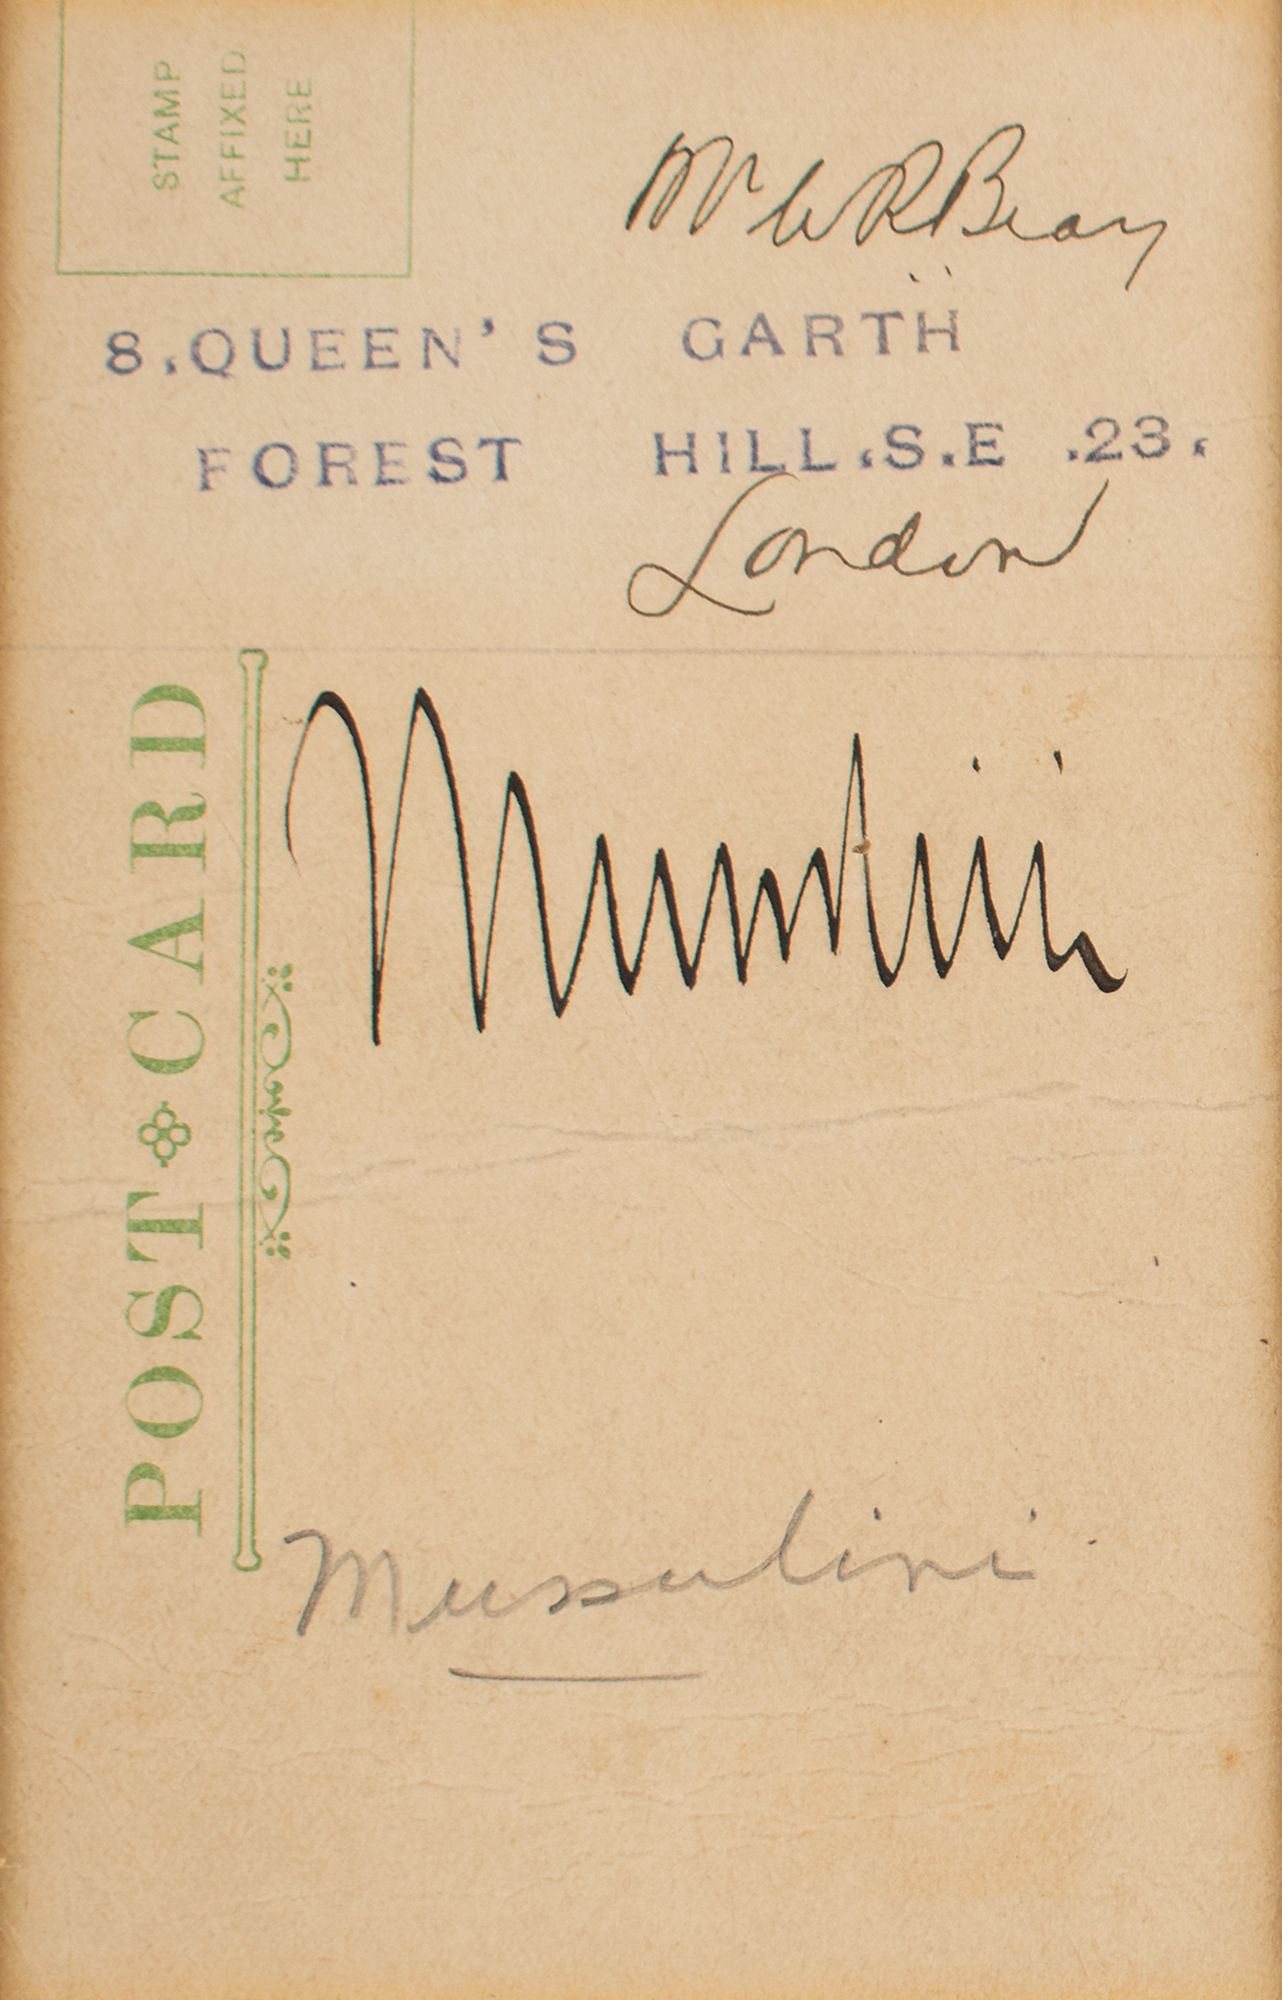 STAMP
AFFIXED
HERE
Mr W R Beay
8, QUEEN'S GARTH
FOREST HILL, S.E .23.
London
POST CARD
Mussolini
Mussulini